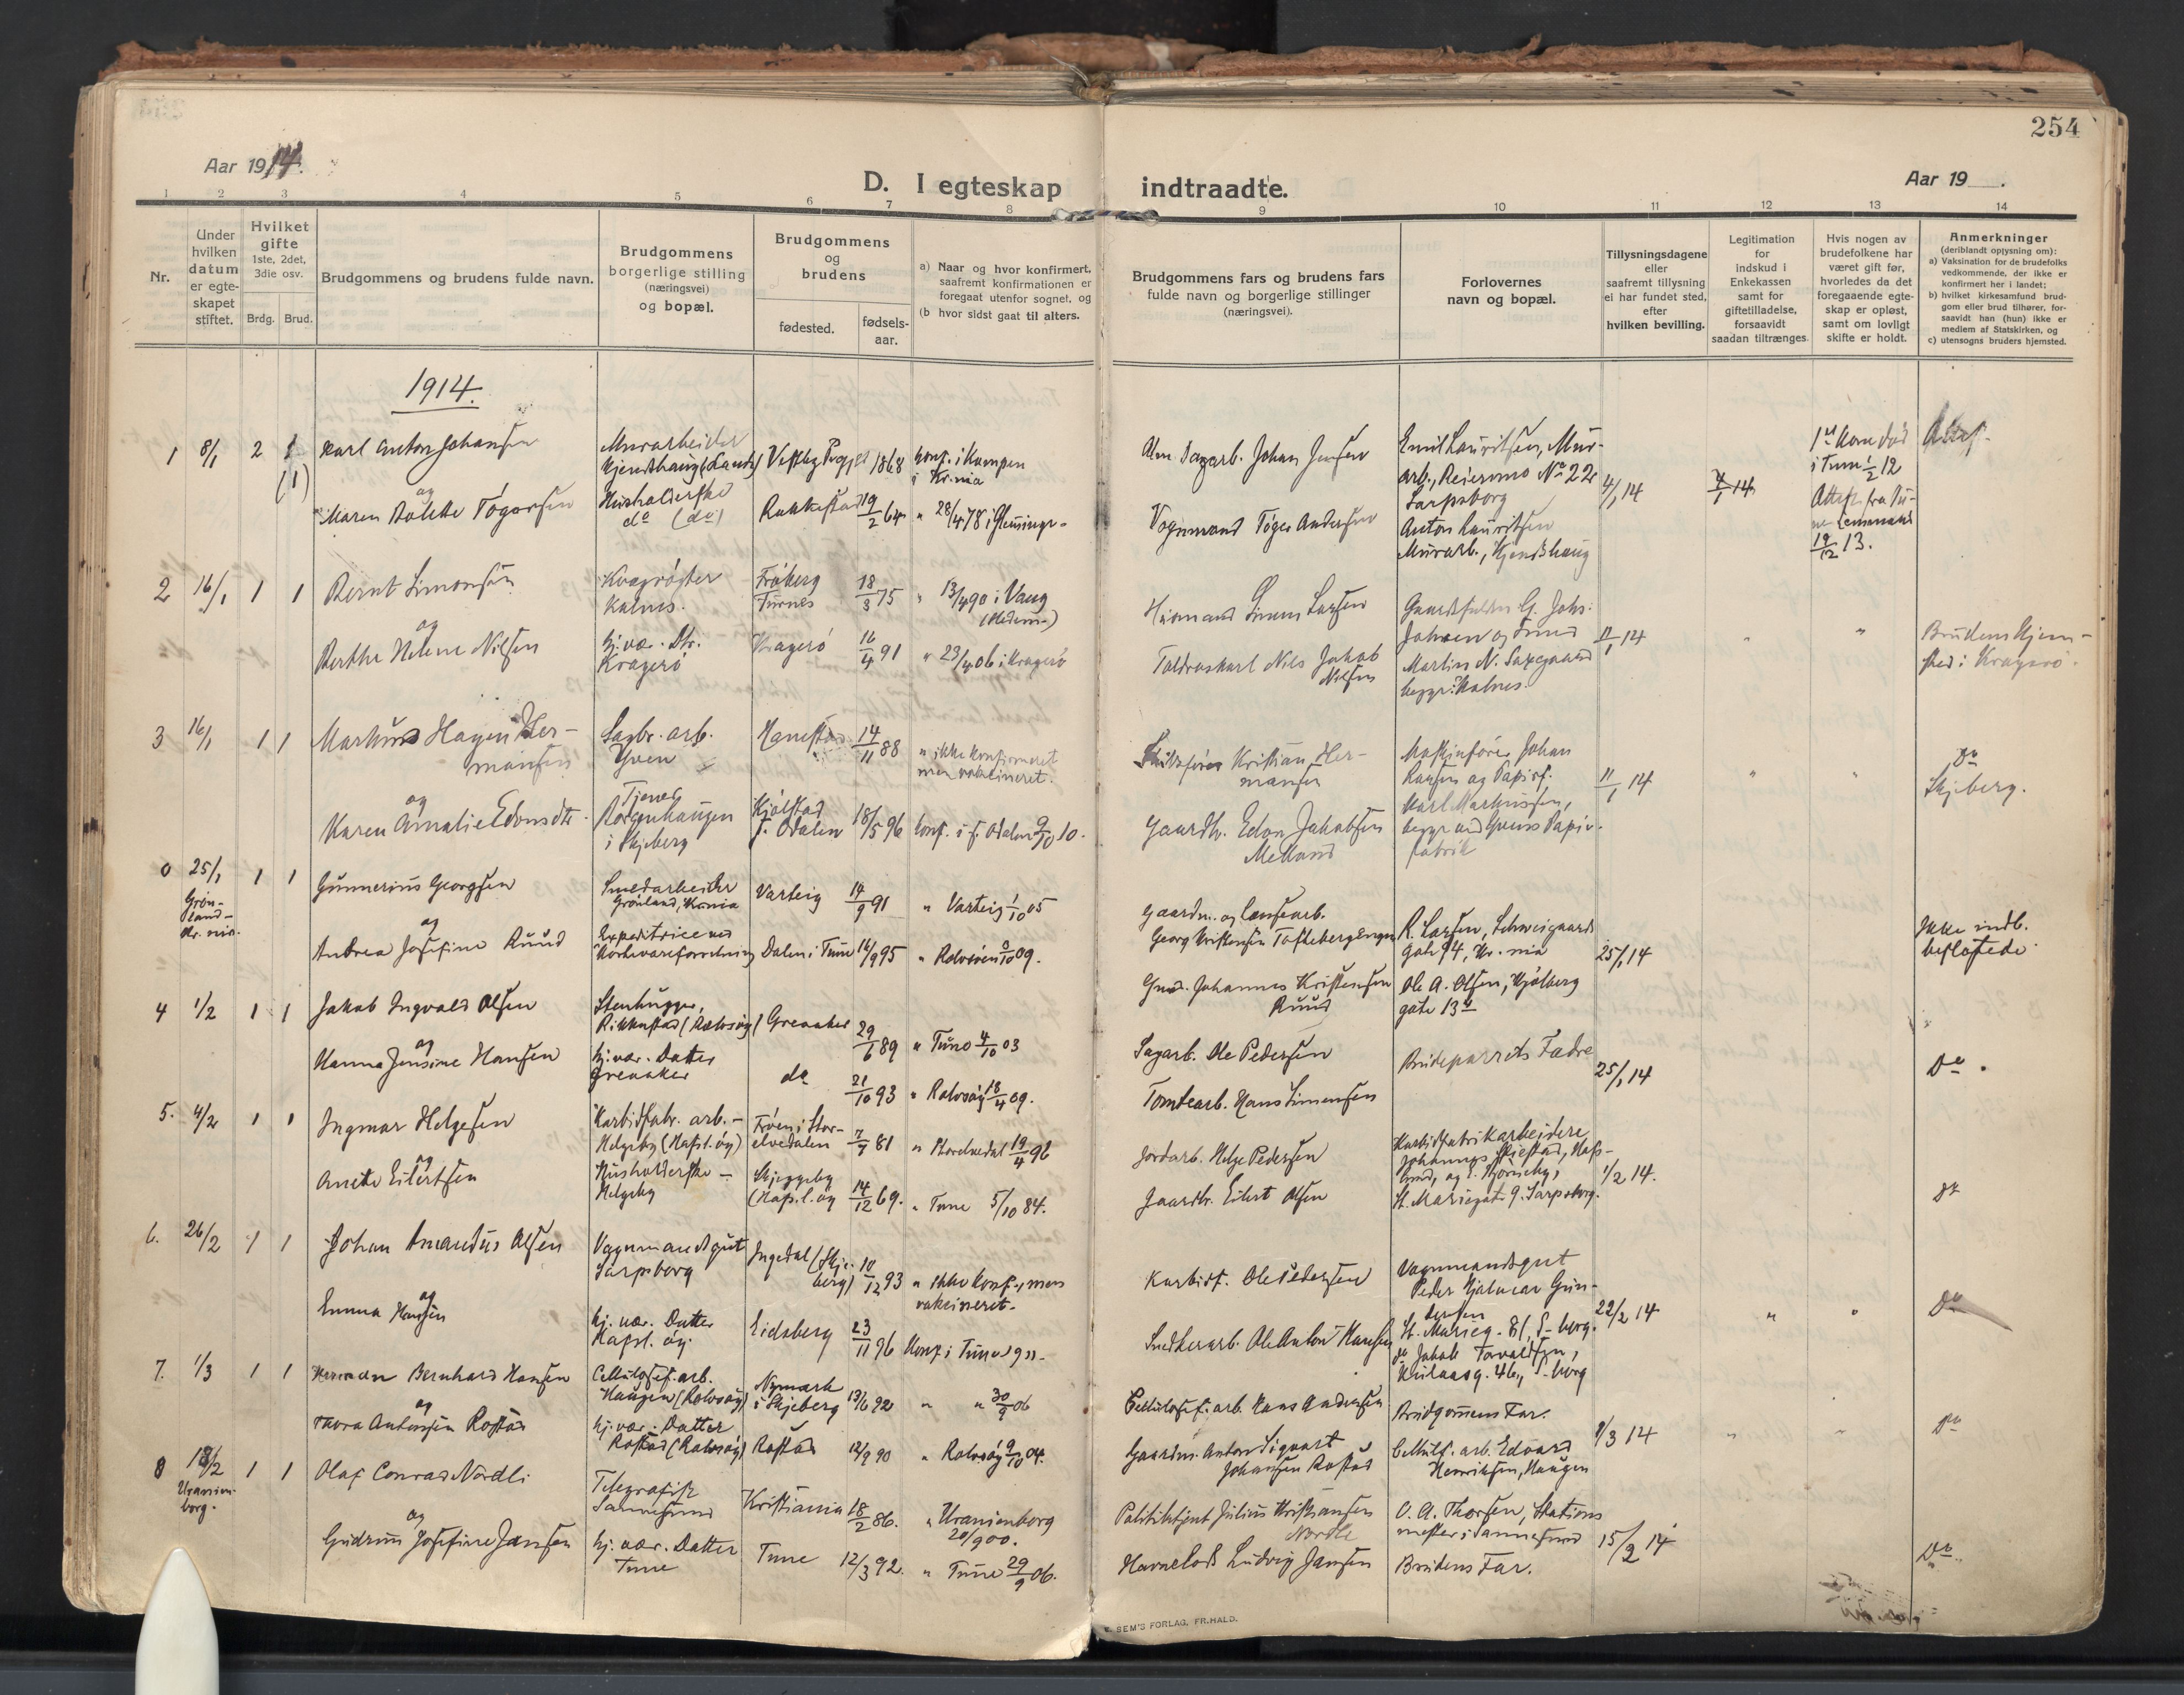 254
Aar 1914.
D. I egteskap indtraadte.
Aar 19 .
1 2 3 4 5 6 7 8 9 10 11 12 13 14
Nr.
Under hvilken datum er egte-skapet stiftet.
Hvilket gifte
1ste, 2det, 3die osv.
Brdg. Brud.
Brudgommens og brudens fulde navn.
Brudgommens borgerlige stilling (næringsvei) og bopæl.
Brudgommens og brudens
fødested.
fødsels-aar.
a) Naar og hvor konfirmert, saafremt konfirmationen er foregaat utenfor sognet, og
(b hvor sidst gaat til alters.
Brudgommens fars og brudens fars fulde navn og borgerlige stillinger (næringsvei).
Forlovernes navn og bopæl.
Tillysningsdagene eller saafremt tillysning ei har fundet sted, efter hvilken bevilling.
Legitimation for indskud i Enkekassen samt for giftetilladelse, forsaavidt saadan tiltrænges.
Hvis nogen av brudefolkene har været gift før, hvorledes da det foregaaende egte-skap er opløst, samt om lovligt skifte er holdt.
Anmerkninger
(deriblandt opjysning om):
a) Vaksination for de brudefolks vedkommende, der ikke er konfirmert her i landet;
b) hvilket kirkesamfund brud-gom eller brud tilhører, for-saavidt han (hun) ikke er medlem af Statskirken, og
c) utensogns bruders hjemsted.
1914.
1 8/1 2 1 (1)
Karl Anton Johansen
og
Maren Bolette Tøgersen
Murarbeider
Husholderske
do (do)
1868
konf. i Kampen i Kr.nia
Rakkestad 19/2 64
" 28/4 78 i Glemminge
Johan Jensen
Vognmand Tøger Andersen
Emil Lauritsen, Mur-
arb., No 22
Sarpsborg
Anton Lauritsen
Murarb., Hjendshaug
4/1 14
1ste Kone død
i Tune 1/2 12
Attest fra Tu-
ne Lensmand
19/12 13.
Attest
2 16/1 1 1
Bernt Simonsen
og
Berthe Helene Nilsen
Kvægrøgter
Kalnes.
hj.vær. Dtr.
Kragerø
Frøberg
Furnes
18/3 75
" 13/4 90 i Vang
(Hedem.)
Kragerø 16/4 91
" 23/4 06 i Kragerø
Husmand Simen Larsen
Toldroskarl Nils Jakob
Nilsen
Martin N. Saxegaard
begge: Kalnes.
11/1 14
" "
Brudens Hjem-
sted: Kragerø.
3 16/1 1 1
Markus Hagen Her-
mansen
og
Karen Amalie Edonsdtr.
Sagbr. arb.
Yven
Tjener
i Skjeberg
14/11 88
" ikke konfirmeret
men vakcineret.
S. Odalen 18/5 96
konf. i S. Odalen 9/10 10.
Kristian Her-
mansen
Gaardbr. Edon Jakobsen
Melland
Maskinfører Johan
Larsen og Papirf.
Karl Markussen,
begge ved Yvens Papir-
fabrik
11/1 14
" "
Do
Skjeberg.
0 25/1 1 1
Grøn-
land-
Kr.nia.
Gunnerius Georgsen
og
Andrea Josefine Ruud
Smedarbeider
Grønland, Kr.nia
Expeditrice ved
Varteig 14/9 91
" Varteig 1/10 05
Dalen i Tune 14/9 95
" Rolvsøen 3/10 09.
Gaardm. og Landsearb.
Gmd. Johannes Kristensen
Ruud
R. Larsen, Schweigaards
gate 94, Kr.nia
Ole A. Olsen, Kjølberg
gate 13 b
25/1 14
Ikke indb.
beslægtede
4 1/2 1 1
Jakob Ingvald Olsen
og
Hanna Jensine Hansen
Stenhugger,
Rikkestad (Rolvsøy)
hj.vær. Datter
Greaaker
Greaaker 29/6 89
" Tune 4/10 03
do 21/10 93
" Rolvsøy 18/4 09.
Sagarb. Ole Pedersen
Tomtearb. Hans Simensen
Brudeparrets Fædre
25/1 14
Do.
5. 4/2 1 1
Ingmar Helgesen
og
Anette Eilertsen
Karbidfabr. arb.-
Helgeby (Hafsl.øy)
Husholderske -
Helgeby
Frøen i Stor-
elvedalen 7/7 81
" Storelvedal 19/4 96
Skjeggeby
(Hafsl.øy 14/12 69.
" Tune 5/10 84.
Jordarb. Helge Pedersen
Gaardbr. Eilert Olsen
Karbidfabrikarbeidere
St. Mariegt. 9. Sarpsborg.
1/2 14.
do
6. 26/2 1 1
Johan Amandus Olsen
og
Emma Hansen
Vognmandsgut
Sarpsborg
hj. vær. Datter
Hafsl. øy.
Ingedal (Skje-
berg) 10/12 93
" ikke konf., men
vakcineret.
Eidsberg 23/11 96
Konf. i Tune 1911.
Karbidf. Ole Pedersen
Snedkerarb. Ole Anton Hansen
Vognmandsgut
Peder Hjalmar Gun-
dersen
St. Marieg. 81, S-borg.
do Jakob Torvaldsen,
46, S-borg
22/2 14
" "
Do
7. 1/3 1 1
Herman Bernhard Hansen
og
Thora Antonsen Rostad
Cellulosef. arb.
Haugen (Rolvsøy)
hj.vær. Datter
Rostad (Rolvsøy)
Nymark
i Skjeberg 13/6 92
" " 30/9 06
Rostad 12/9 90
" Rolvsøy 9/10 04.
Cellulosef. arb. Hans Andersen
Gaardm. Anton Sigvart
Johansen Rostad
Brudgomens Far.
Cellulf. arb. Edvard
Henriksen, Haugen
8/3 14
" "
Do
8 18/2 1 1
Uranien-
borg.
Olaf Conrad Nordli
og
Gudrun Josefine Jansen
Telegrafist
Sannesund
hj. vær. Datter
Tune
Kristiania 18/2 86.
" Uranienborg
20/9 00.
Tune 12/3 92.
" Tune 29/9 06.
Politibtjent Julius Kristiansen
Nordli
Havnelods Ludvig Jansen
O. A. Thorsen, Stations
mester i Sannesund
Brudens Far.
15/2 14
Do
SEM'S FORLAG, FR.HALD.